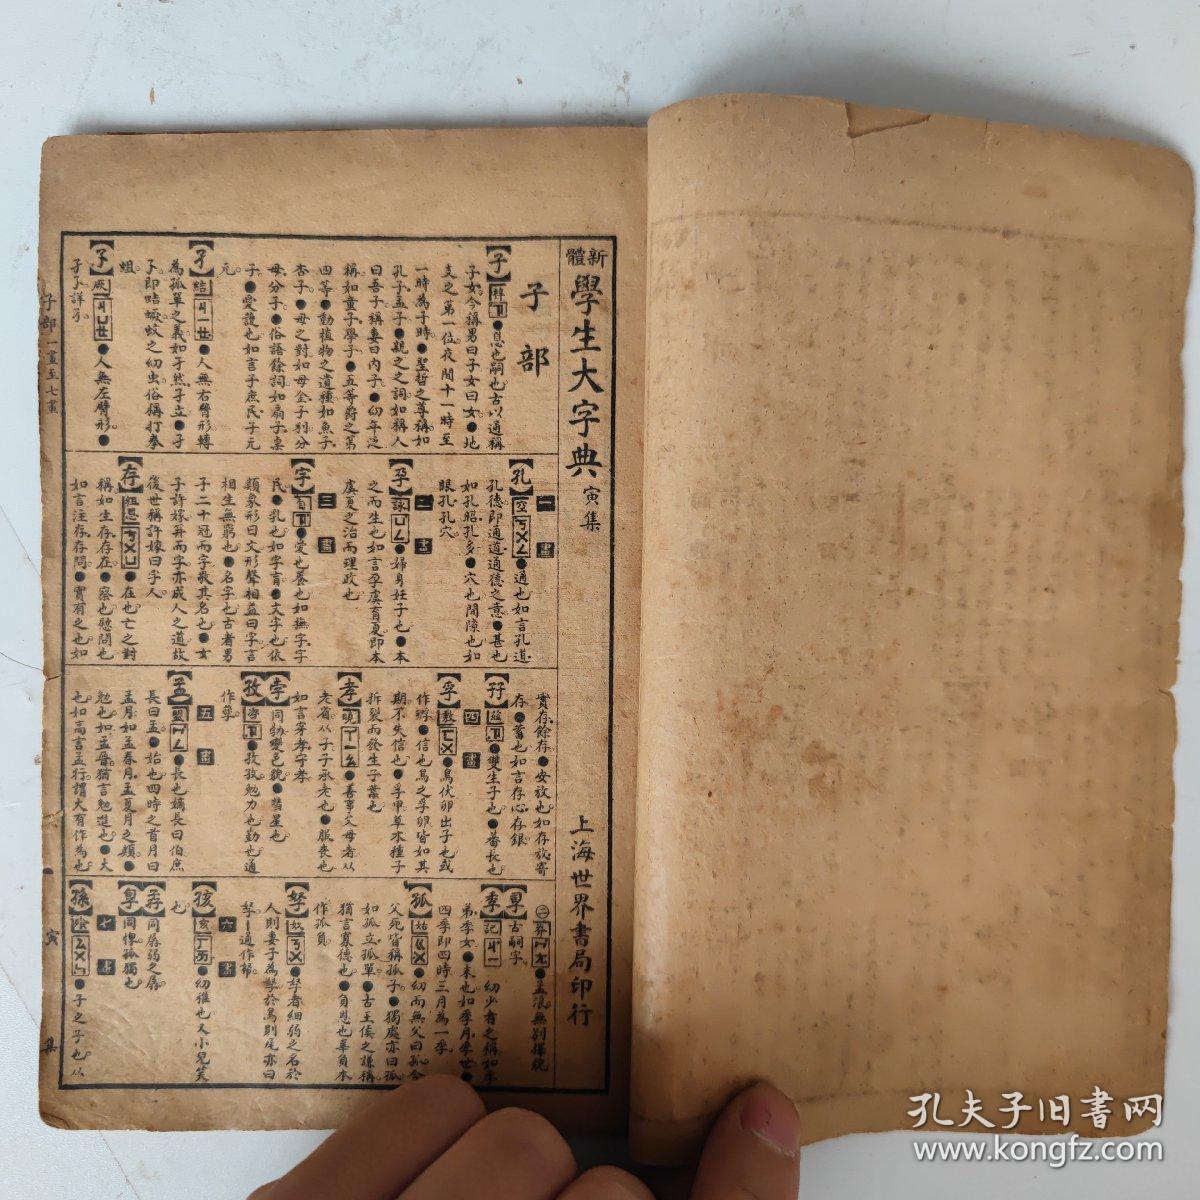 新體學生大字典 寅集 上海世界書局印行
子部
【子】梓ㄗ●息也嗣也古以通稱
子女今稱男曰子女曰女●地
支之第一位夜間十一時至
一時為子時●聖哲之尊稱如
孔子孟子●親之之詞如稱人
曰吾子稱妻曰內子●幼年之
稱如童子學子●五等爵之第
四等●動植物之遺種如魚子
杏子●母之對如母金子利分
母分子●俗語餘詞如扇子桌
子●愛護也如言子庶民子元
元
【孑】結ㄐㄧㄝ●人無右臂形轉
為孤單之義如孑然孑立●孑
孓即蛣蟩蚊之幼虫俗稱打拳
蛆
【孓】厥ㄐㄩㄝ●人無左臂形●
孑孓詳孑
一畫
【孔】空ㄎㄨㄥ●通也如言孔道
孔德即通道通德之意●甚也
如孔昭孔多●穴也間隙也如
眼孔孔穴
二畫
【孕】●婦身妊子也●本
之而生也如言孕虞育夏即本
虞夏之治而理政也
三畫
【字】ㄗ●愛也養也如撫字字
民●乳也如字育●文字也依
類象形曰文形聲相益曰字言
相生無窮也●名字也古者男
子二十冠而字敬其名也●女
子許嫁笄而字亦成人之道故
後世稱許嫁曰字人
【存】ㄘㄨㄣ●在也亡之對
稱如生存存在●察也慰問也
如言注存存問●實有之也如
實存餘存●安放也如存放寄
存●蓄也如言存心存銀
【孖】ㄗ●雙生子也●蕃長也
四畫
【孚】敷ㄈㄨ●鳥伏卵出子也或
作孵●信也鳥之孚卵皆如其
期不失信也●孚甲草木種子
拆裂而發生子葉也
【孝】ㄒㄧㄠ●善事父母者从
老省从子子承老也●服喪也
如言穿孝守孝
【孛】同勃變色貌●彗星也
【孜】ㄗ●孜孜勉力也勤也通
作孳
五畫
【孟】ㄇㄥ●長也嫡長曰伯庶
長曰孟●始也四時之首月曰
孟月如孟春月孟夏月之類●
勉也如孟晉猶言勉進也●大
也如高言孟行謂大有作為也
㊁莽ㄇㄤ●孟浪無別擇貌
【孠】古嗣字
【季】記ㄐㄧ●幼少者之稱如季
弟季女●末也如季月季世●
四季即四時三月為一季
【孤】姑ㄍㄨ●幼而無父曰孤今
父死皆稱孤子●獨處亦曰孤
如孤立孤單●古王侯之謙稱
猶言寡德也●負恩也辜負本
作孤負
【孥】奴ㄋㄨ●孥者細弱之名於
人則妻子為孥於鳥則尾亦曰
孥—通作帑
六畫
【孩】ㄏㄞ●幼稚也又小兒笑
也
【孱】同孱弱之孱
同惸孤獨也
七畫
【孫】ㄙㄨㄣ●子之子也从
子部一畫至七畫
寅集
孔夫子旧書网
www.kongfz.com